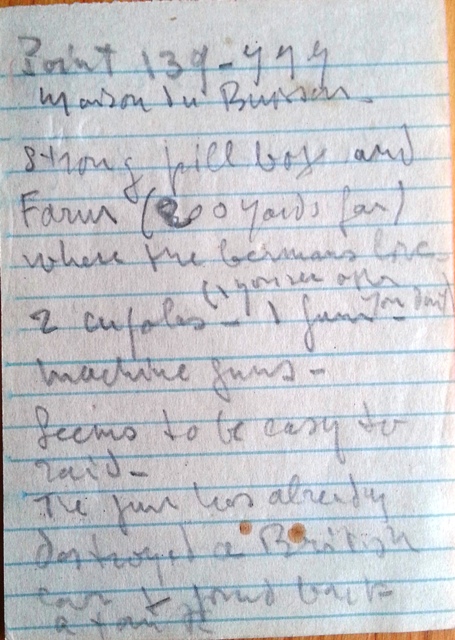 Point 139-444
Maison du Buisson -
Strong pill box and
Farm (200 yards far)
where the Germans live -
2 cupolas - 1 gun -
machine guns -
Seems to be easy to
raid -
The gun has already
destroyed a British
car &
a tank